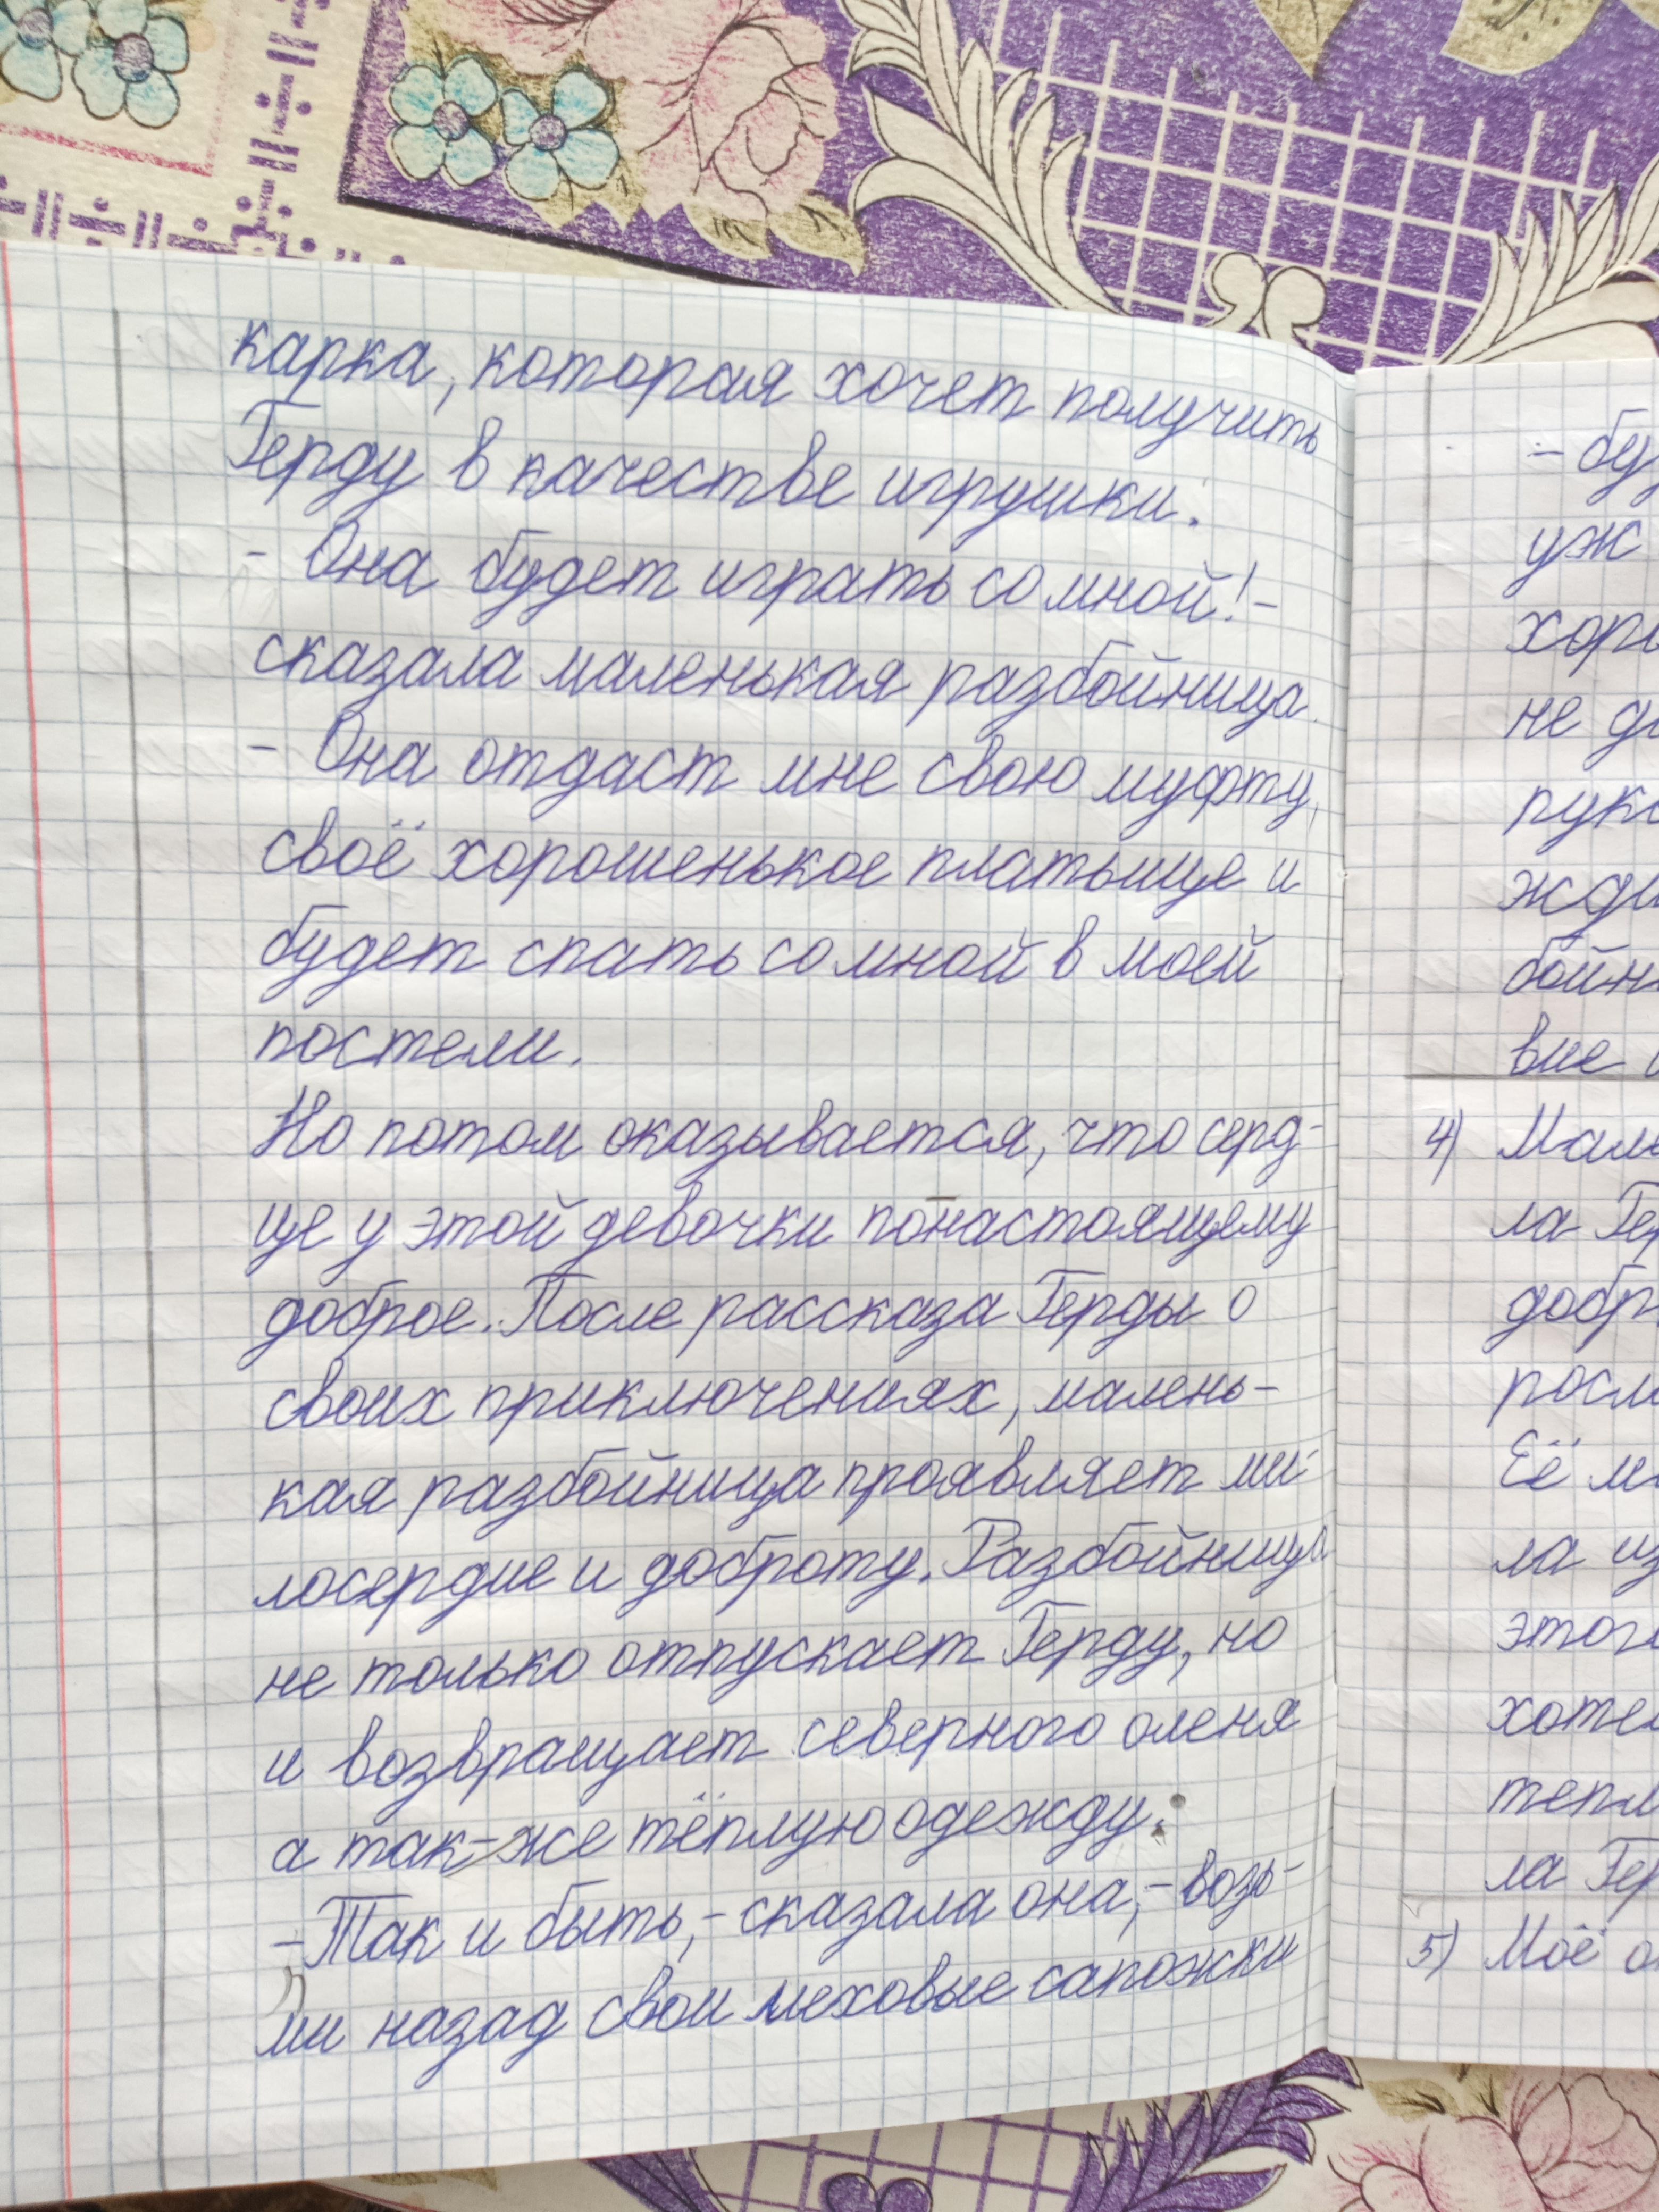 карка, которая хочет получить
Герду в качестве игрушки.
- Она будет играть со мной! -
сказала маленькая разбойница.
- Она отдаст мне свою муфту,
своё хорошенькое платьице и
будет спать со мной в моей
постели.
Но потом оказывается, что серд-
це у этой девочки по-настоящему
доброе. После рассказа Герды о
своих приключениях, малень-
кая разбойница проявляет ми-
лосердие и доброту. Разбойница
не только отпускает Герду, но
и возвращает северного оленя
а так-же тёплую одежду.
- Так и быть, - сказала она, - возь-
ми назад свои меховые сапожки
- бу
уж
хор
не
пук
жди
бойн
вие
4) Мале
ла Гер
добр
росл
Её м
ла из
этог
хоте
тепл
ла Гер
5) Моё